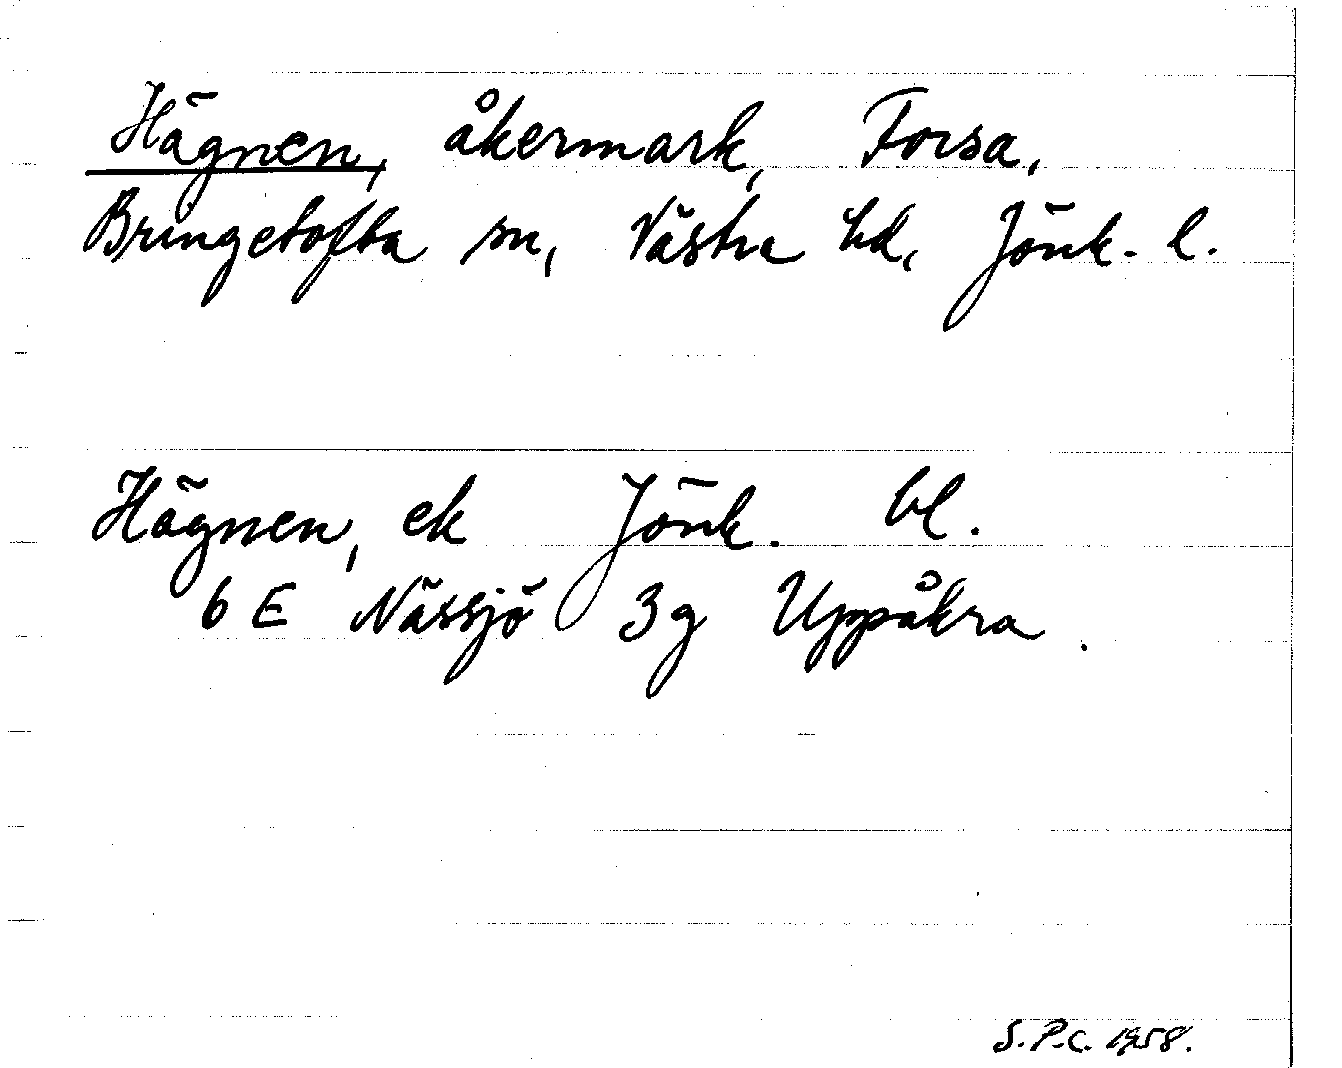 Hägnen, åkermark, Forsa,
Bringetofta sn, Västra hd, Jönk. l.
Hägnen, ek Jönk. bl.
6 E Nässjö 3g Uppåkra.
S.P.C. 1958.